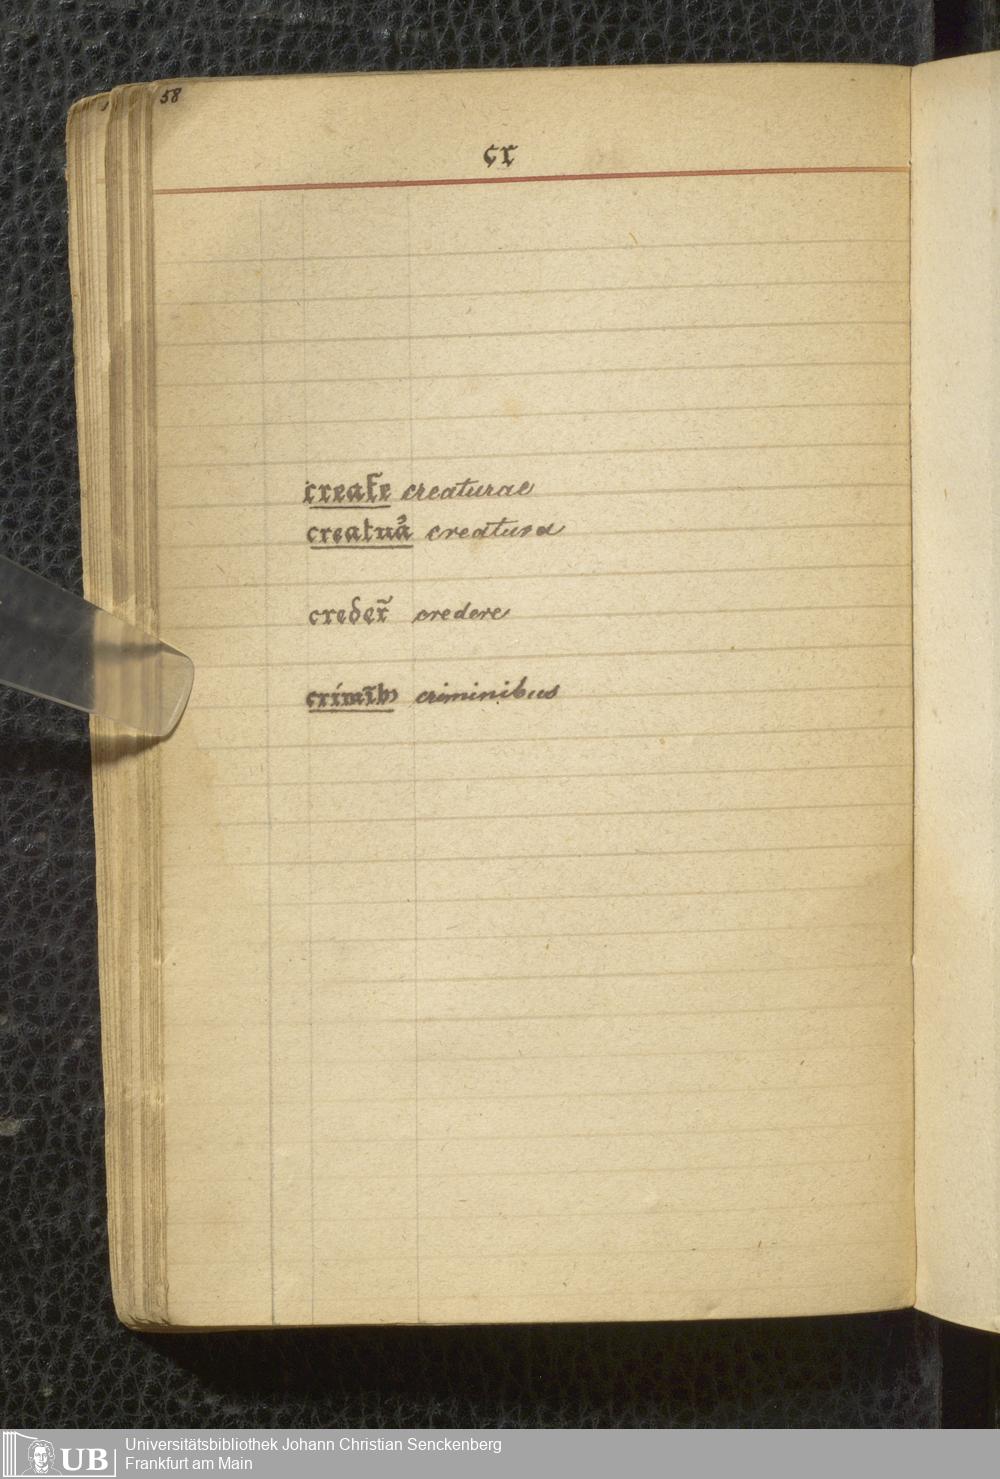 58
cr
creat̄e creaturae
creatuᷓa creatura
creder̃ credere
crimīb₉ criminibus
UB
Universitätsbibliothek Johann Christian Senckenberg
Frankfurt am Main